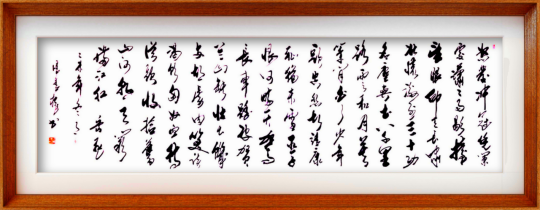 怒发冲冠凭栏
处潇潇雨歇抬
望眼仰天长啸
壮怀激烈三十功
名尘与土八千里
路云和月莫
等闲白了少年
头空悲切靖康
耻犹未雪臣子
恨何时灭驾
长车踏破贺
兰山缺壮志饥
餐胡虏肉笑谈
渴饮匈奴血待
从头收拾旧
山河朝天阙
满江红岳飞